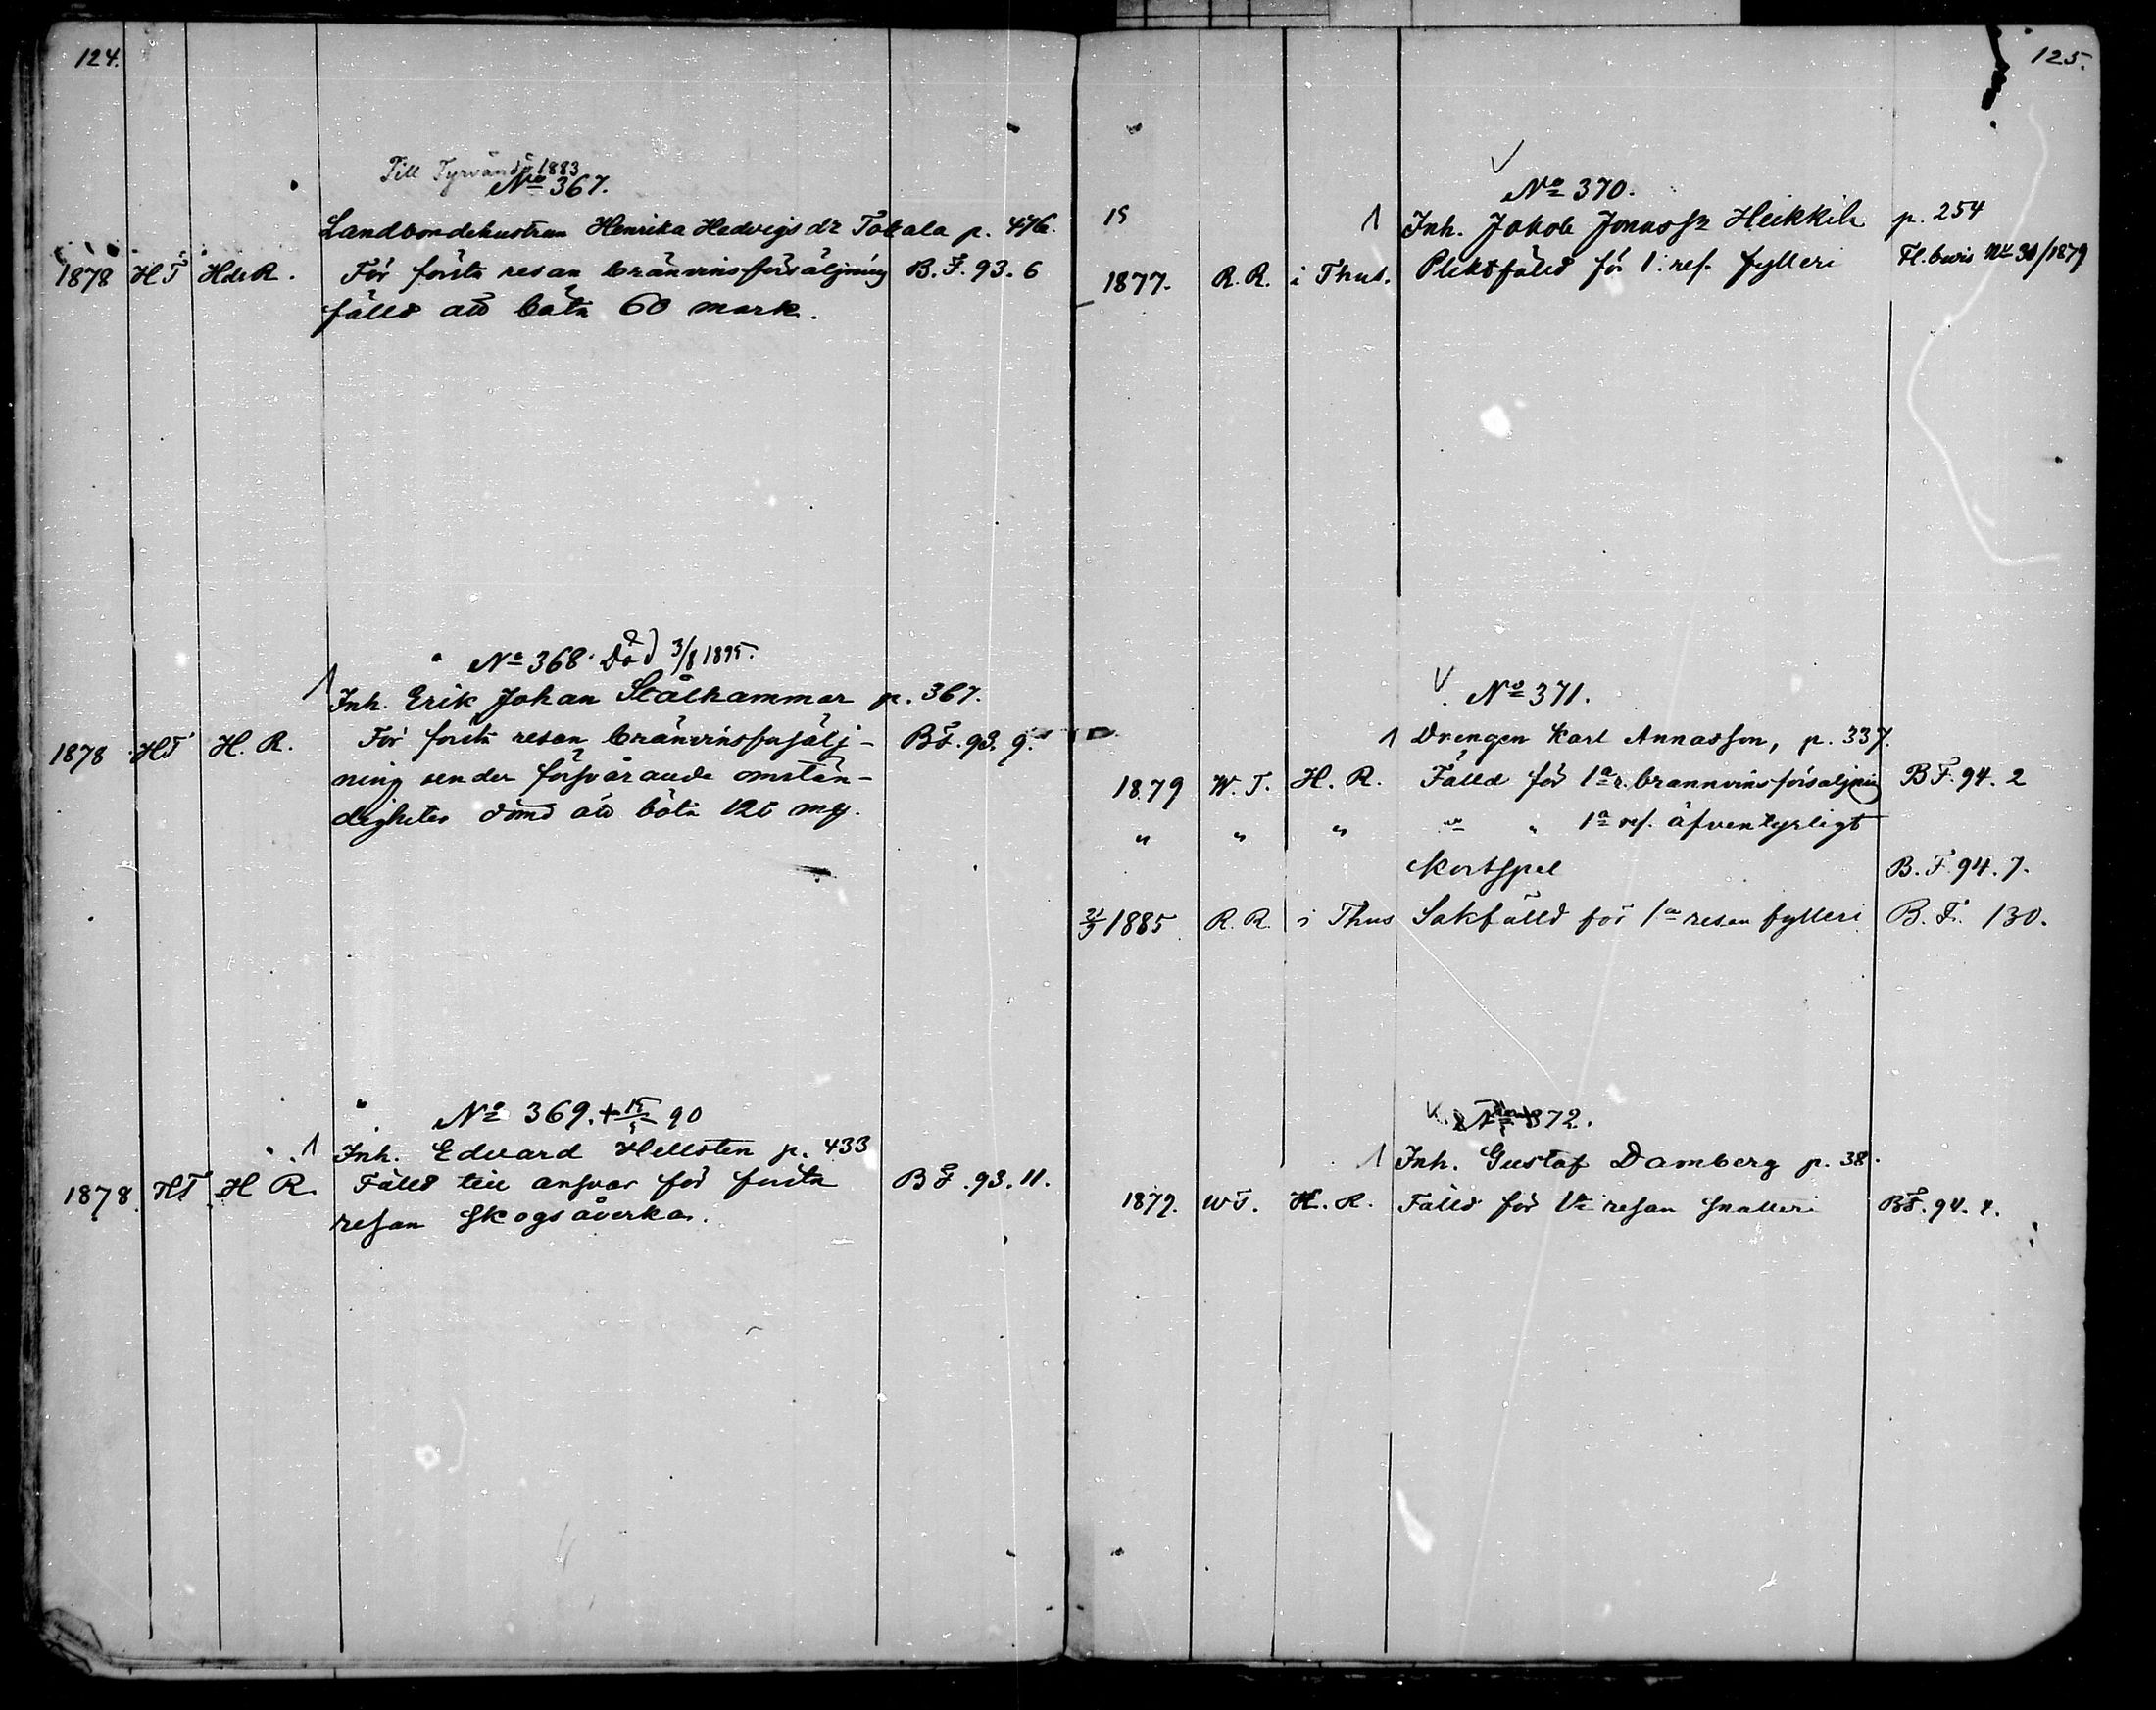 124.
Till Tyrvändö 1883
No 367.
Landbondehustrun Henrika Hedvigs dr Tokala p. 476.
1878 HT HdR. För första resan bränvinsförsäljning B.F. 93. 6
fälld att böta 60 mark.
No 368. Död 3/8 1895.
1 Inh. Erik Johan Stålhammar p. 367.
1878 HT H. R. För första resan bränvinsförsälj- BF. 93. 9.
ning under försvårande omstän-
digheter dömd att böta 120 mk.
No 369. + 15/5 90
1 Inh. Edvard Hellsten p. 433
1878. HT H R. Fälld till ansvar för första BF. 93. 11.
resan skogsåverkan.
125.
No 370.
15 1 Inh. Jakob Jonass. Heikkilä p. 254
1877. R. R. i Thus. Pliktfälld för 1. res. fylleri Fl. bevis No 30/1879
No 371.
1 Drengen Karl Annasson, p. 337.
1879 W. T. H. R. Fälld för 1a r. brannvinsförsäljning BF. 94. 2
" " " " " 1a res. äfventyrligt
kortspel B. F. 94. 7.
21/9 1885 R. R. i Thus Sakfälld för 1a resan fylleri B. F. 130.
No 372.
1 Inh. Gustaf Damberg p. 38.
1879. WT. H. R. Fälld för 1a resan snatteri BF. 94. 4.